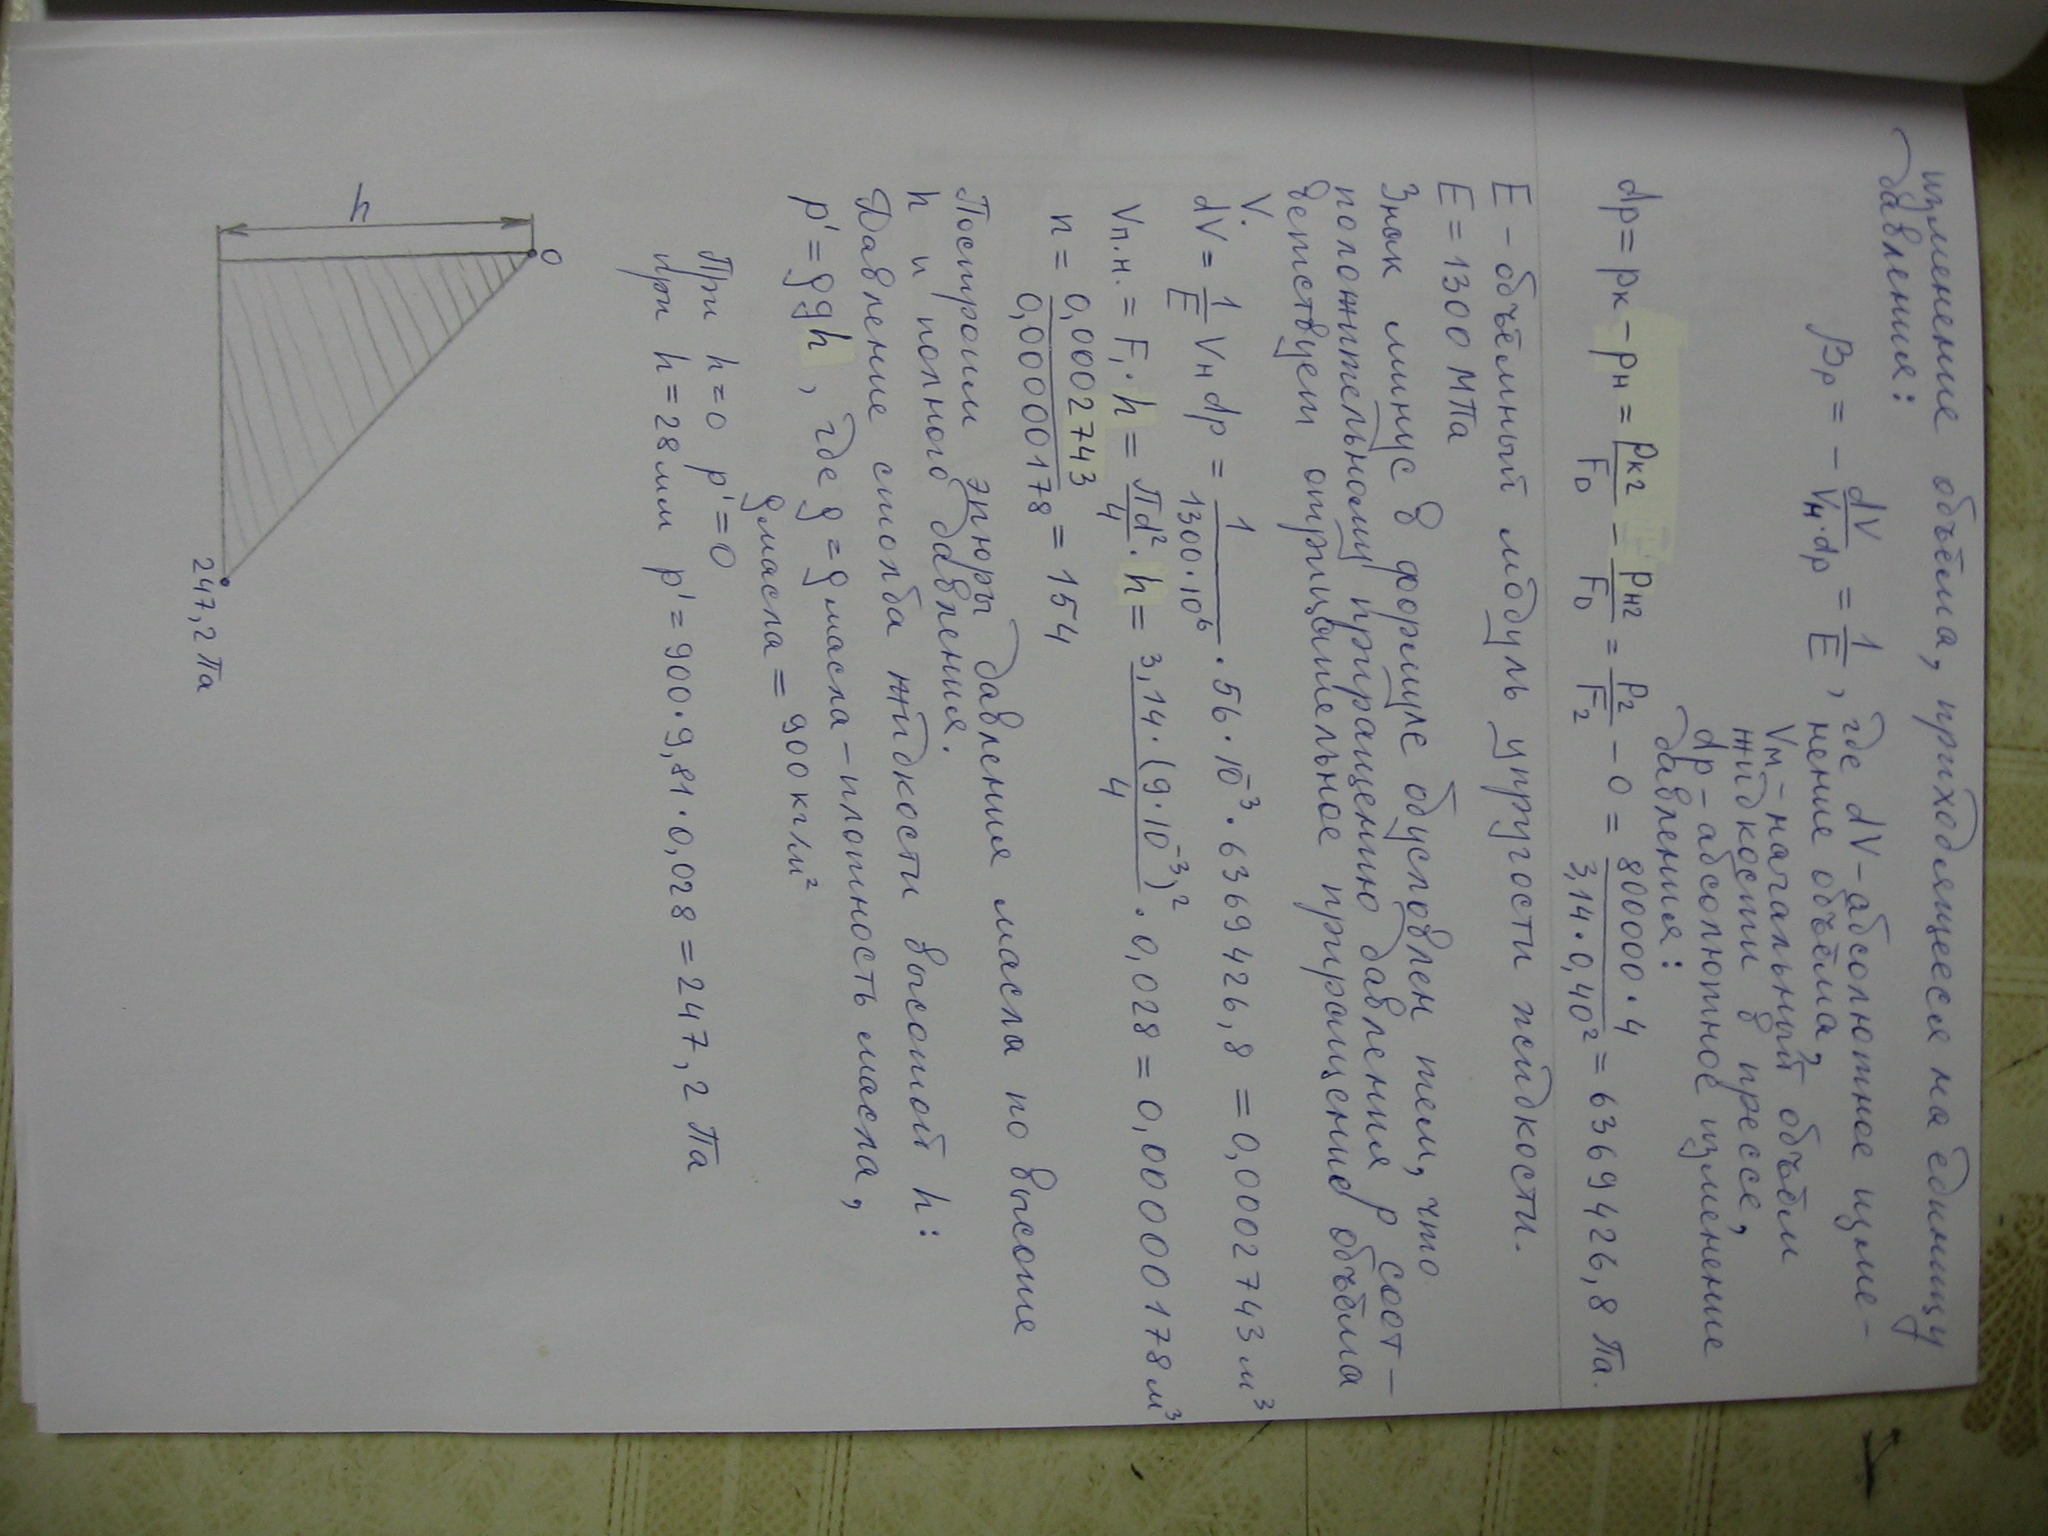 изменение объёма, приходящееся на единицу
давления:
βр = - dV / Vн·dp = 1/E, где dV - абсолютное изме-
нение объёма,
Vм - начальный объём
жидкости в прессе,
dp - абсолютное изменение
давления:
dp = pк - pн = Pк2/FD - Pн2/FD = P2/F2 - 0 = 800000·4 / 3,14·0,40² = 6369426,8 Па.
E - объёмный модуль упругости жидкости.
E = 1300 МПа
Знак минус в формуле обусловлен тем, что
положительному приращению давления p соот-
ветствует отрицательное приращение объёма
V.
dV = 1/E Vн dp = 1/1300·10⁶ · 56·10⁻³ · 6369426,8 = 0,0002743 м³
Vп.н. = F₁·h = πd²/4 · h = 3,14·(9·10⁻³)²/4 · 0,028 = 0,00000178 м³
n = 0,0002743 / 0,00000178 = 154
Построим эпюры давления масла по высоте
h и полного давления.
Давление столба жидкости высотой h:
p' = ρgh, где ρ = ρ масла - плотность масла,
ρ масла = 900 кг/м²
При h = 0 p' = 0
при h = 28 мм p' = 900·9,81·0,028 = 247,2 Па
0
h
247,2 Па